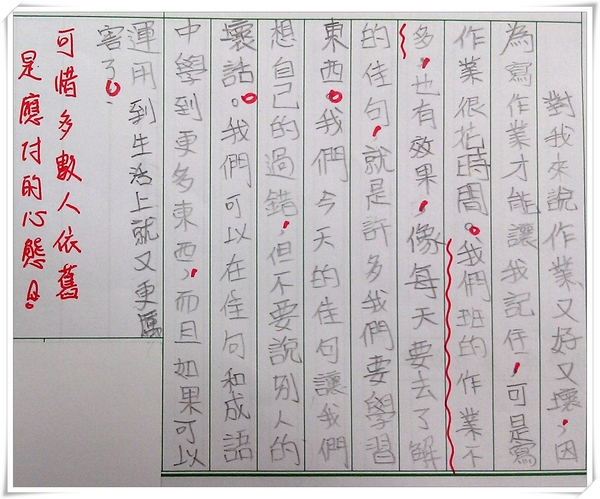 對我來說作業又好又壞，因
為寫作業才能讓我記仔，可是寫
作業很花時間。我們班的作業不
多，也有效果，像每天要去了解
的佳句，就是許多我們要學習
東西。我們今天的佳句讓我們
想自己的過錯，但不要說別人的
壞話。我們可以在佳句和成語
中學到更多東西，而且如果可以
運用到生活上就又更厲
害了。
可惜多數人依舊
是應付的心態！